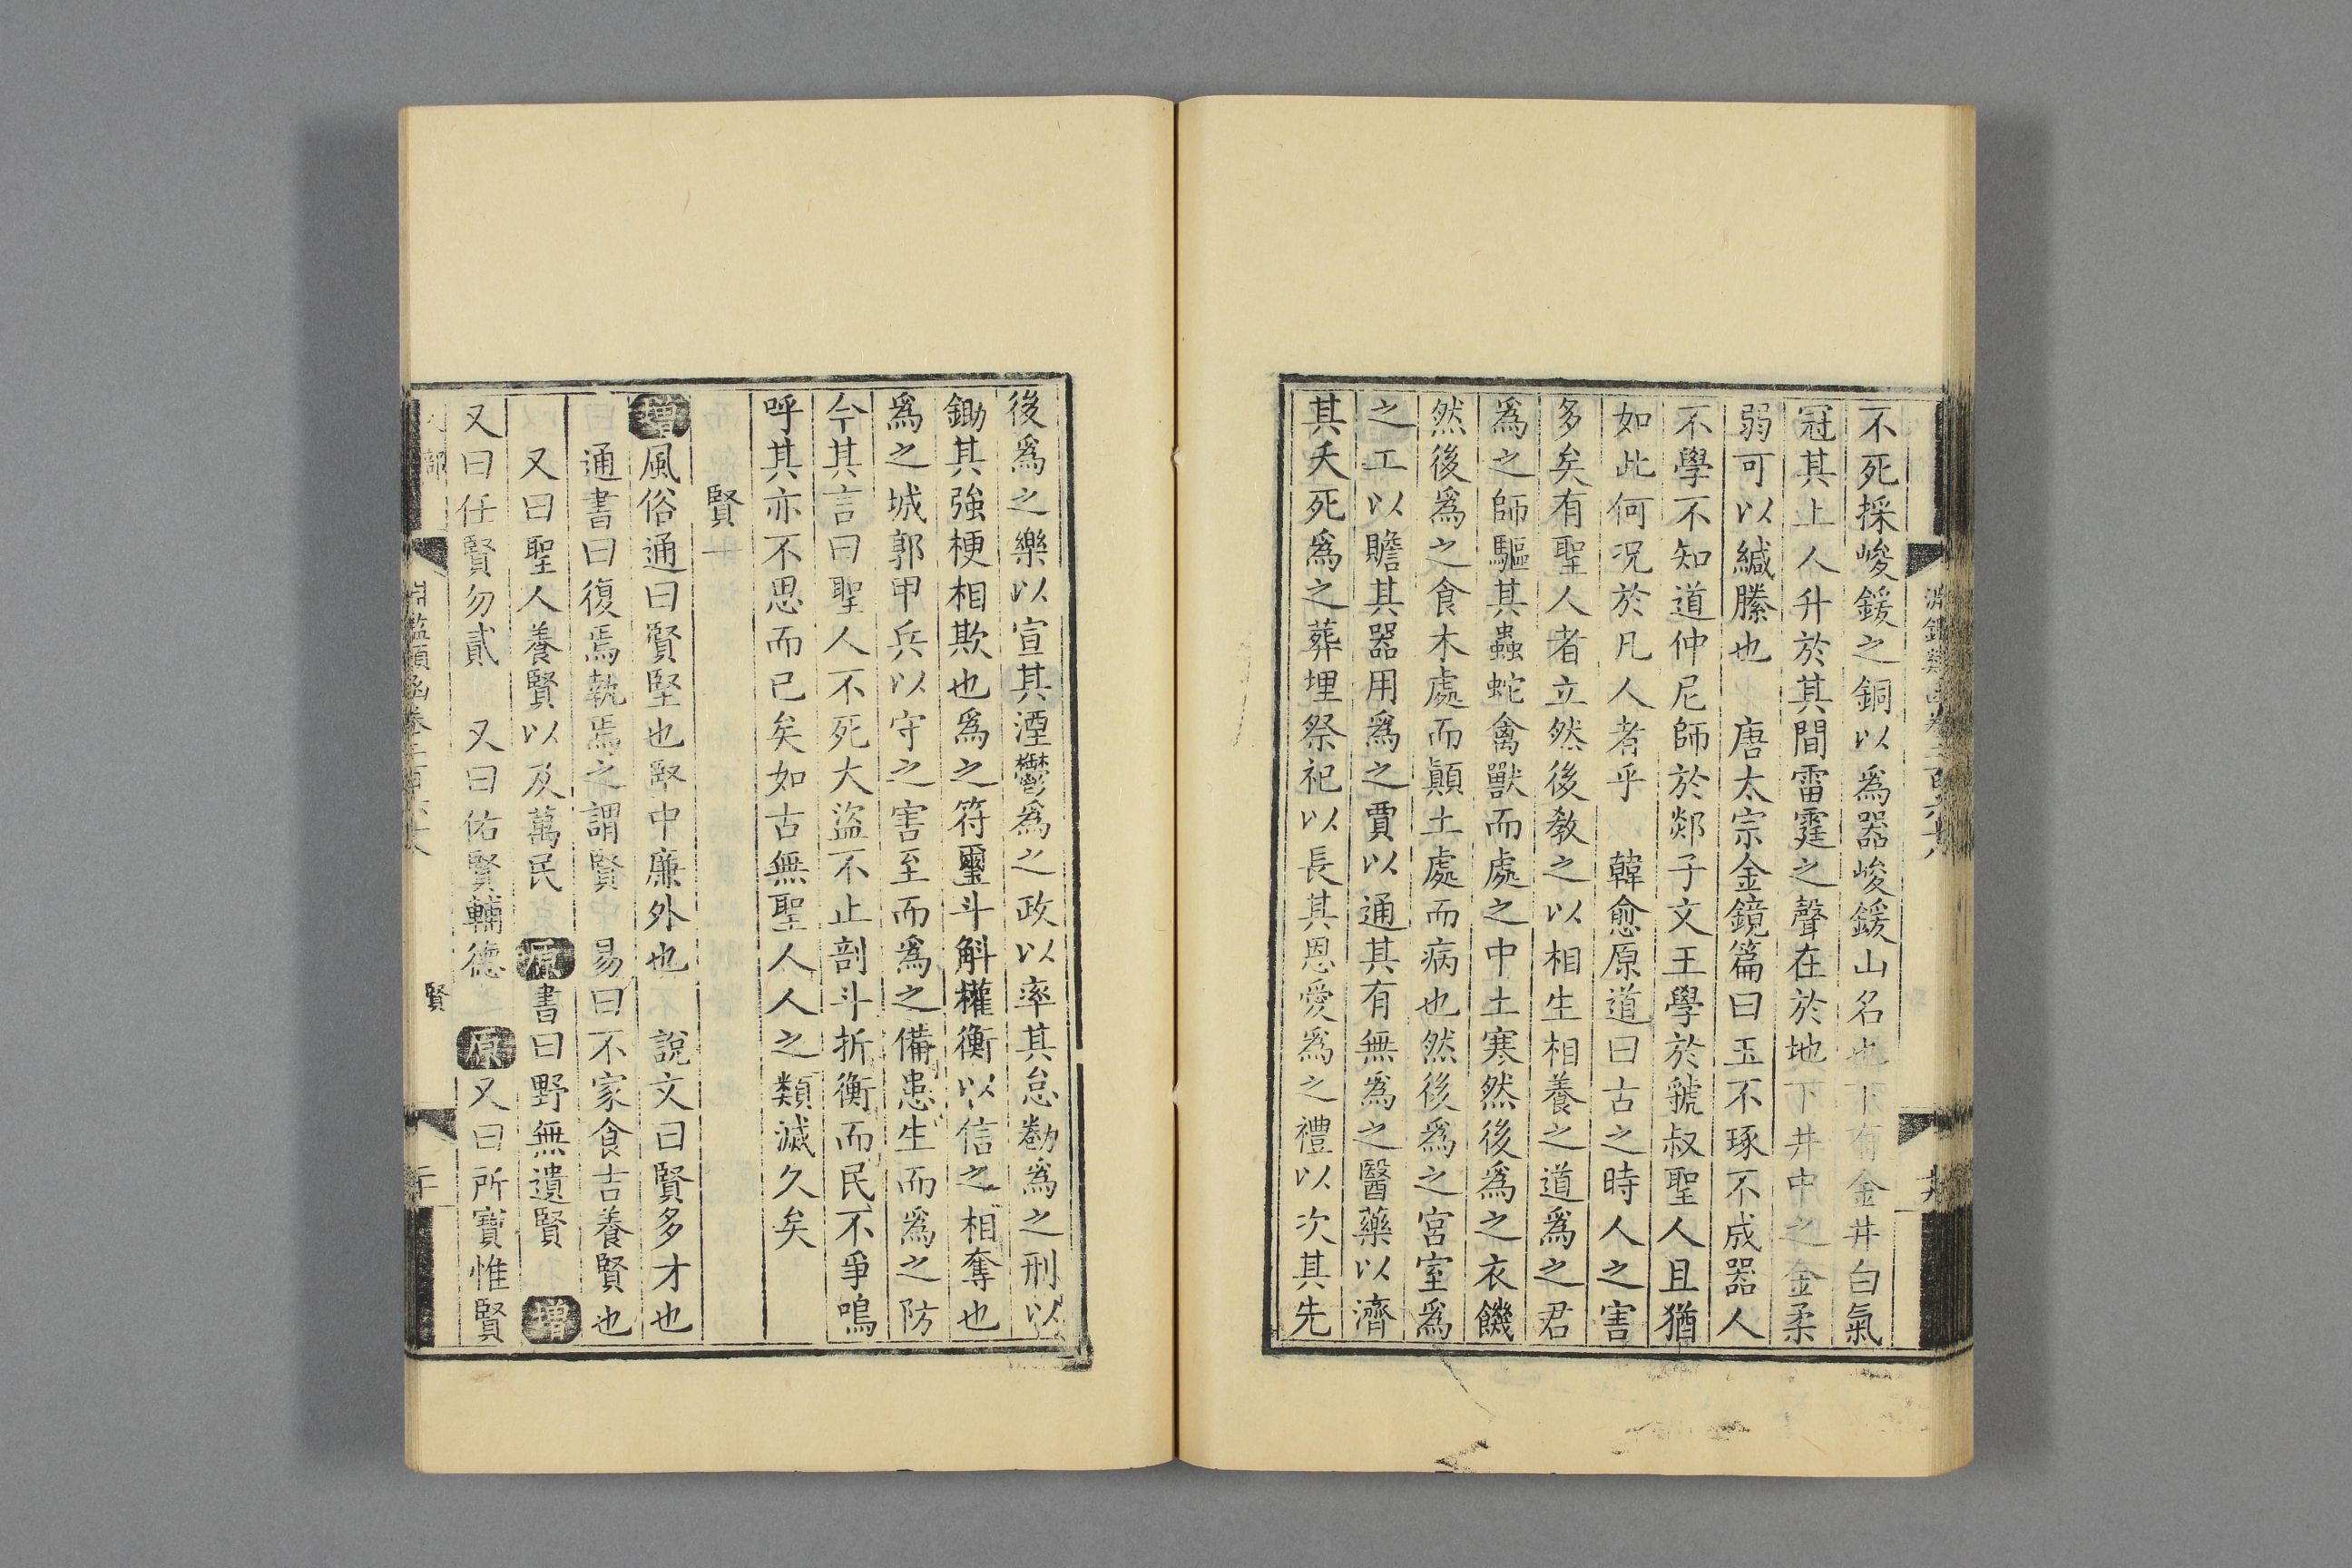 不死採峻鍰之銅以爲器峻鍰山名也下有金井白氣
冠其上人升於其間雷霆之聲在於地下井中之金柔
弱可以緘縢也　唐太宗金鏡篇曰玉不琢不成器人
不學不知道仲尼師於郯子文王學於虢叔聖人且猶
如此何况於凡人者乎　韓愈原道曰古之時人之害
多矣有聖人者立然後教之以相生相養之道爲之君
爲之師驅其蟲蛇禽獸而處之中土寒然後爲之衣饑
然後爲之食木處而顚土處而病也然後爲之宮室爲
之工以贍其器用爲之賈以通其有無爲之醫藥以濟
其夭死爲之葬埋祭祀以長其恩愛爲之禮以次其先
後爲之樂以宣其湮鬱爲之政以率其怠勌爲之刑以
鋤其強梗相欺也爲之符璽斗斛權衡以信之相奪也
爲之城郭甲兵以守之害至而爲之備患生而爲之防
今其言曰聖人不死大盜不止剖斗折衡而民不爭嗚
呼其亦不思而已矣如古無聖人人之類滅久矣
賢一
增風俗通曰賢堅也堅中廉外也　說文曰賢多才也
通書曰復焉執焉之謂賢　易曰不家食吉養賢也
又曰聖人養賢以及萬民　原書曰野無遺賢　增
又曰任賢勿貳　又曰佑賢輔德　原又曰所寶惟賢
部　淵鑑類函卷二百六十　賢　二十